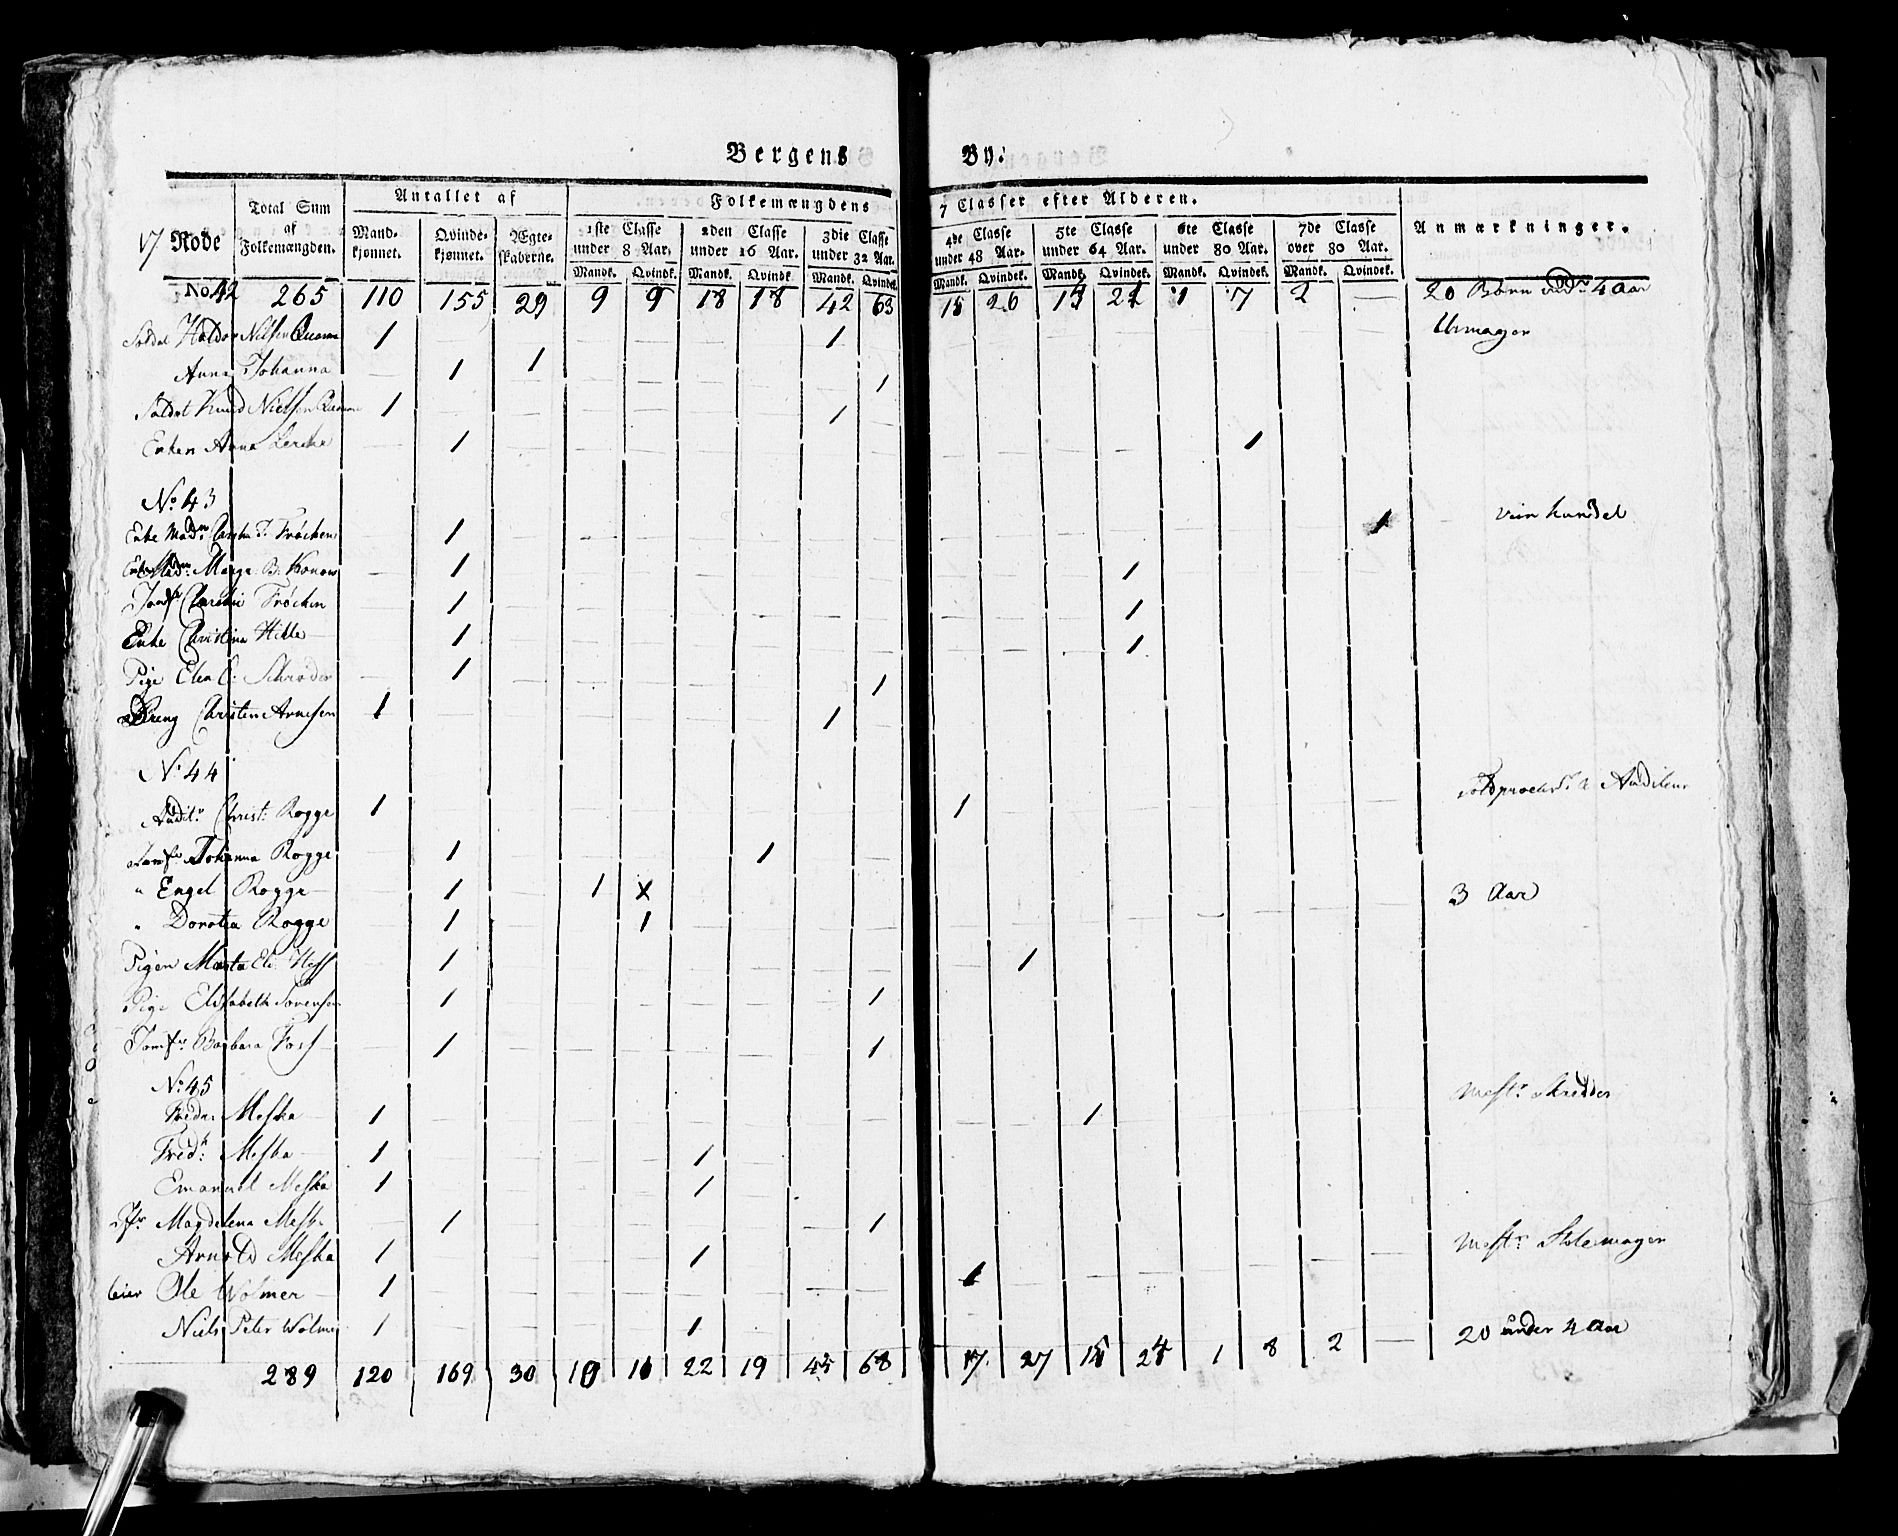 Bergens By:
17 Rode | Total Sum af Folkemængden. | Antallet af | Folkemængdens 7 Classer efter Alderen. | Anmærkninger.
Mandkjønnet. | Qvindekjønnet. | Ægteskaberne. | 1ste Classe under 8 Aar. | 2den Classe under 16 Aar. | 3die Classe under 32 Aar. | 4de Classe under 48 Aar. | 5te Classe under 64 Aar. | 6te Classe under 80 Aar. | 7de Classe over 80 Aar.
Mandk. | Qvindk. | Mandk. | Qvindk. | Mandk. | Qvindek. | Mandk. | Qvindek. | Mandk. | Qvindek. | Mandk. | Qvindek. | Mandk. | Qvindek.
No 42 | 265 | 110 | 155 | 29 | 9 | 9 | 18 | 18 | 42 | 63 | 15 | 26 | 13 | 21 | 1 | 7 | 2 | — | 20 Børn undr 4 Aar
Soldat Haldor Nilsen Quame | 1 | 1 | Urmager
Anna Johanna | 1 | 1 | 1
Soldat Knud Nielsen Quame | 1 | 1
Enken Anna Lerche | 1 | 1
No 43
Enke Madm F. Frøchen | 1 | 1 | vin handel
Madm Marga B. Konow | 1 | 1
Jomfr Frøchen | 1 | 1
Enke Christina Hille | 1 | 1
Pige Elen C. Schrøder | 1 | 1
Dreng Christen Arnesen | 1 | 1
No 44
Auditr Christ: Rogge | 1 | 1 | Auditeur
Jomfr Johanna Rogge | 1 | 1
" Engel Rogge | 1 | 1 | x | 3 Aar
" Dorotea Rogge | 1 | 1
Pigen Marta Els. | 1 | 1
Pige Elisabeth Sørensen | 1 | 1
Jomfr: Barbara Foss | 1 | 1
No 45
Meska | 1 | 1 | Mestr Skredder
Fredk: Meska | 1 | 1
Emanuel Meska | 1 | 1
Jfr Magdelena Meska | 1 | 1
Arnold Meska | 1 | 1 | Mestr Stolemager
leier Ole Wolmer | 1 | 1
Niels Peter Wolmer | 1 | 1 | 20 under 4 Aar
289 | 120 | 169 | 30 | 10 | 10 | 22 | 19 | 45 | 68 | 17 | 27 | 14 | 24 | 1 | 8 | 2 | —